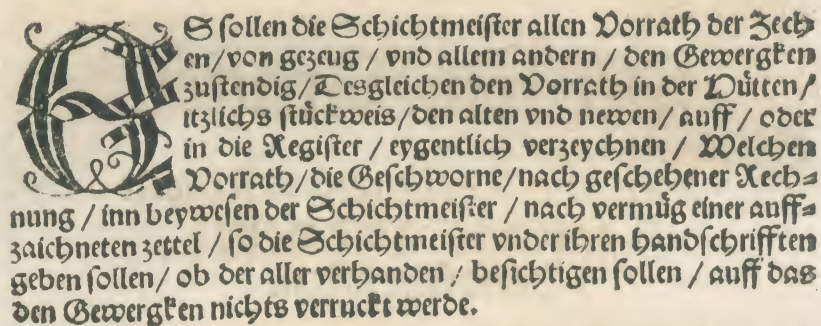 ES sollen die Schichtmeister allen Vorrath der Zech-
en/von gezeug / vnd allem andern / den Gewergken
zustendig/Desgleichen den Vorrath in der Hütten/
itzlichs stückweis/den alten vnd newen/auff/oder
in die Register / eygentlich verzeychnen / Welchen
Vorrath/die Geschworne/nach geschehener Rech=
nung / inn beywesen der Schichtmeister / nach vermüg einer auff=
zaichneten zettel / so die Schichtmeister vnder ihren handschrifften
geben sollen/ ob der aller verhanden / besichtigen sollen / auff das
den Gewergken nichts verruckt werde.